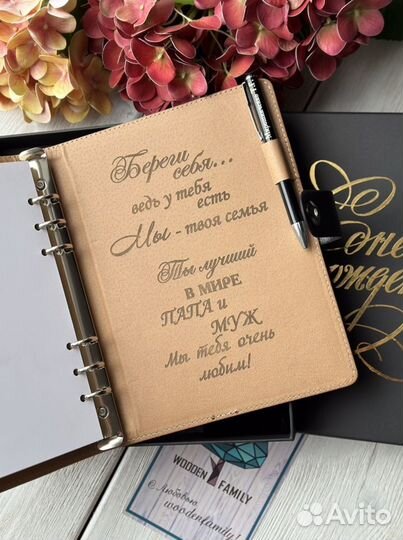 Береги
себя...
ведь у тебя
есть
Мы - твоя семья
Ты лучший
В МИРЕ
ПАПА и
МУЖ
Мы тебя очень
любим!
WOODEN FAMILY
С Любовью
woodenfamily!
Avito